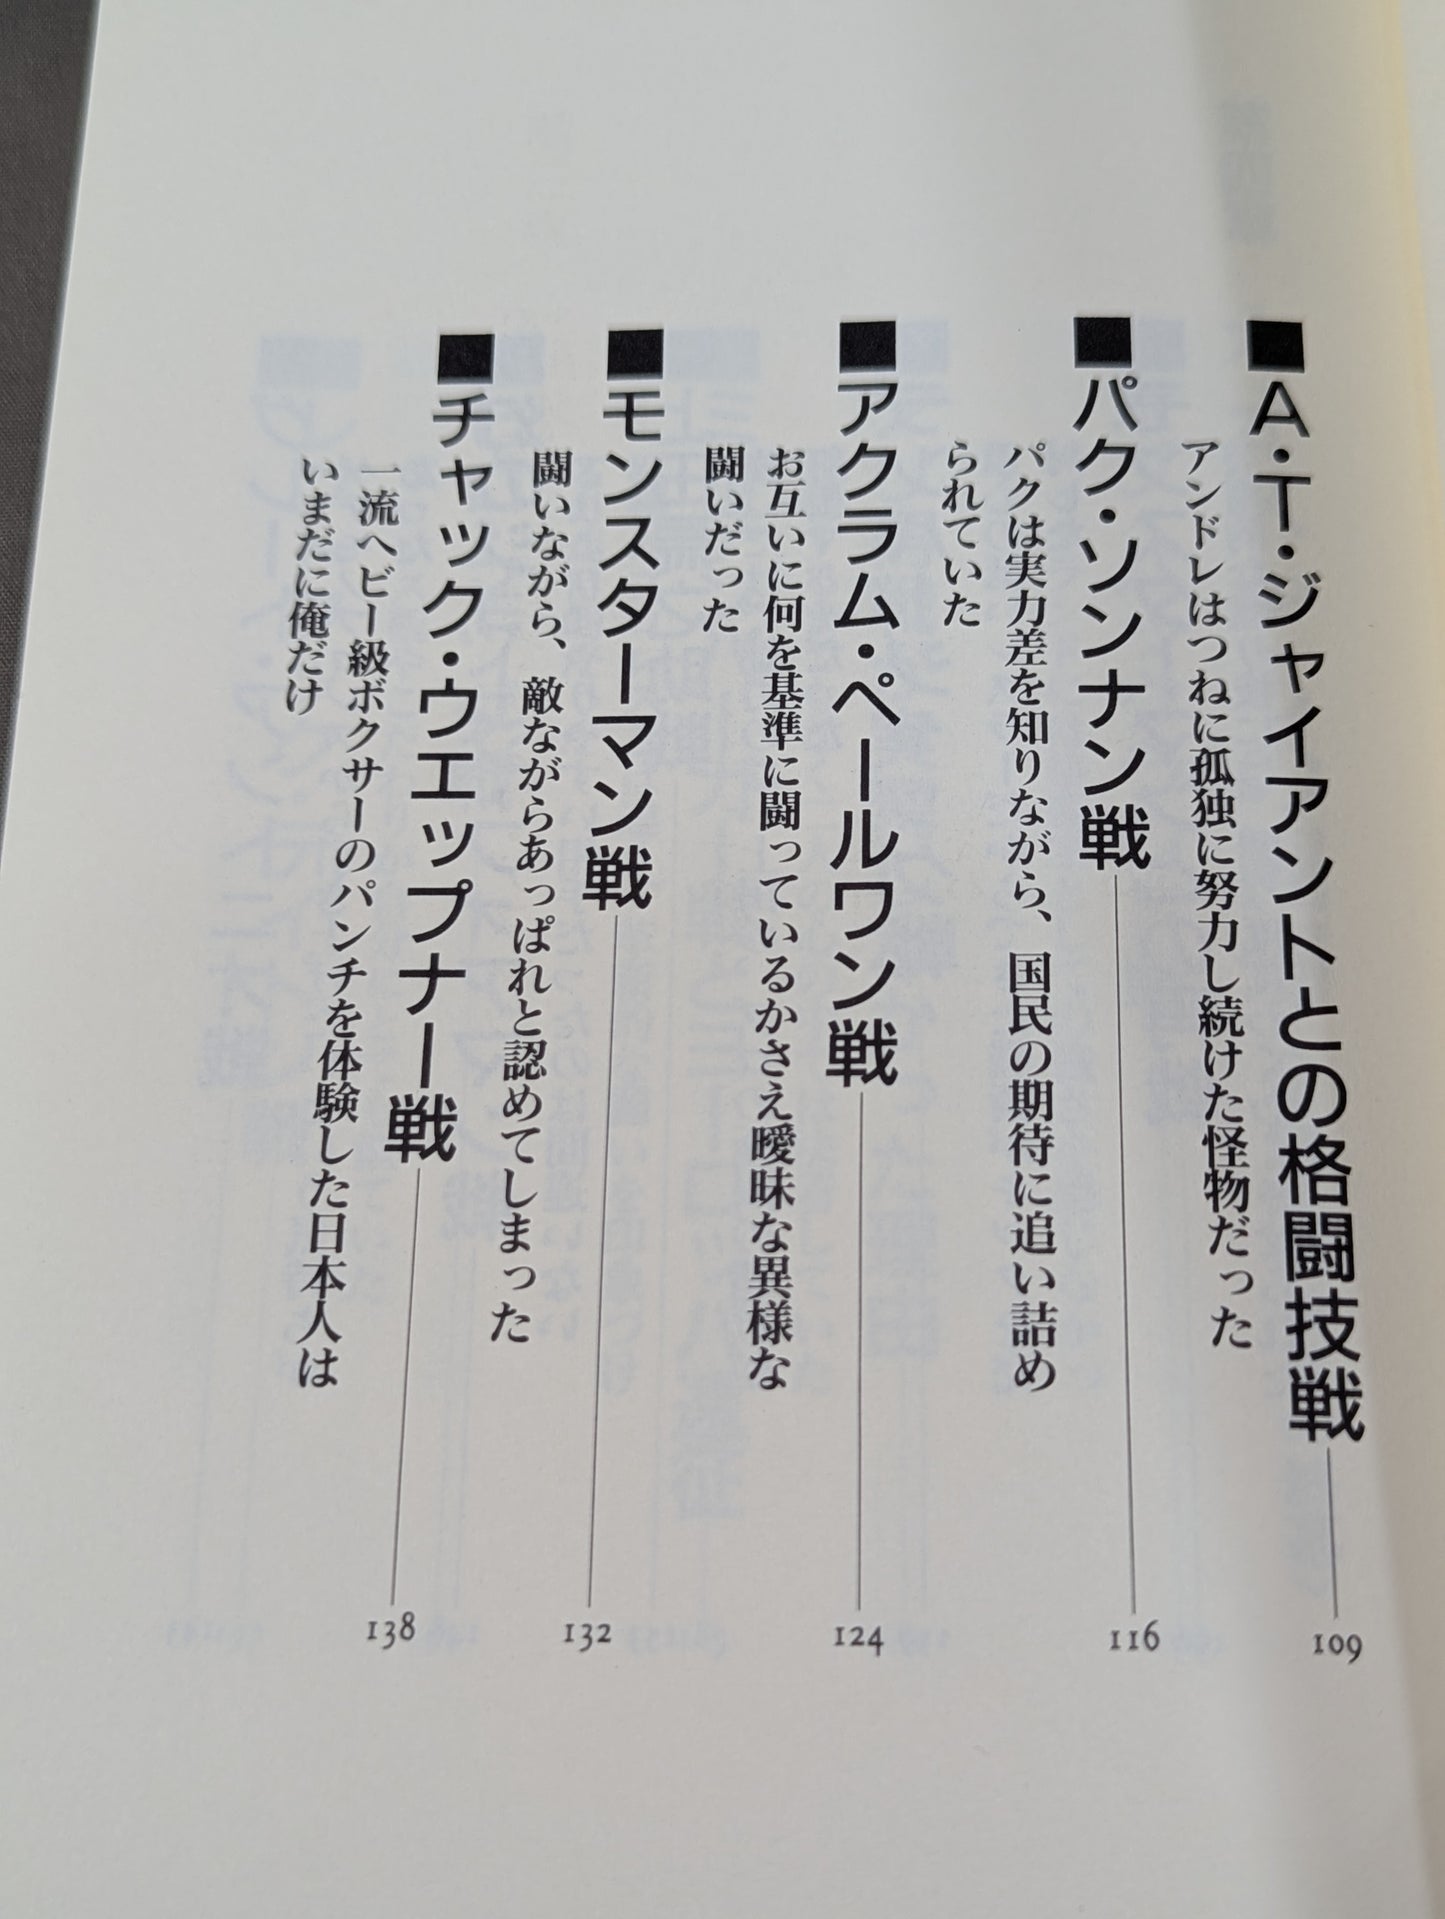 ■A・T・ジャイアントとの格闘技戦 109
アンドレはつねに孤独に努力し続けた怪物だった
■パク・ソンナン戦 116
パクは実力差を知りながら、国民の期待に追い詰め
られていた
■アクラム・ペールワン戦 124
お互いに何を基準に闘っているかさえ曖昧な異様な
闘いだった
■モンスターマン戦 132
闘いながら、敵ながらあっぱれと認めてしまった
■チャック・ウエップナー戦 138
一流ヘビー級ボクサーのパンチを体験した日本人は
いまだに俺だけ